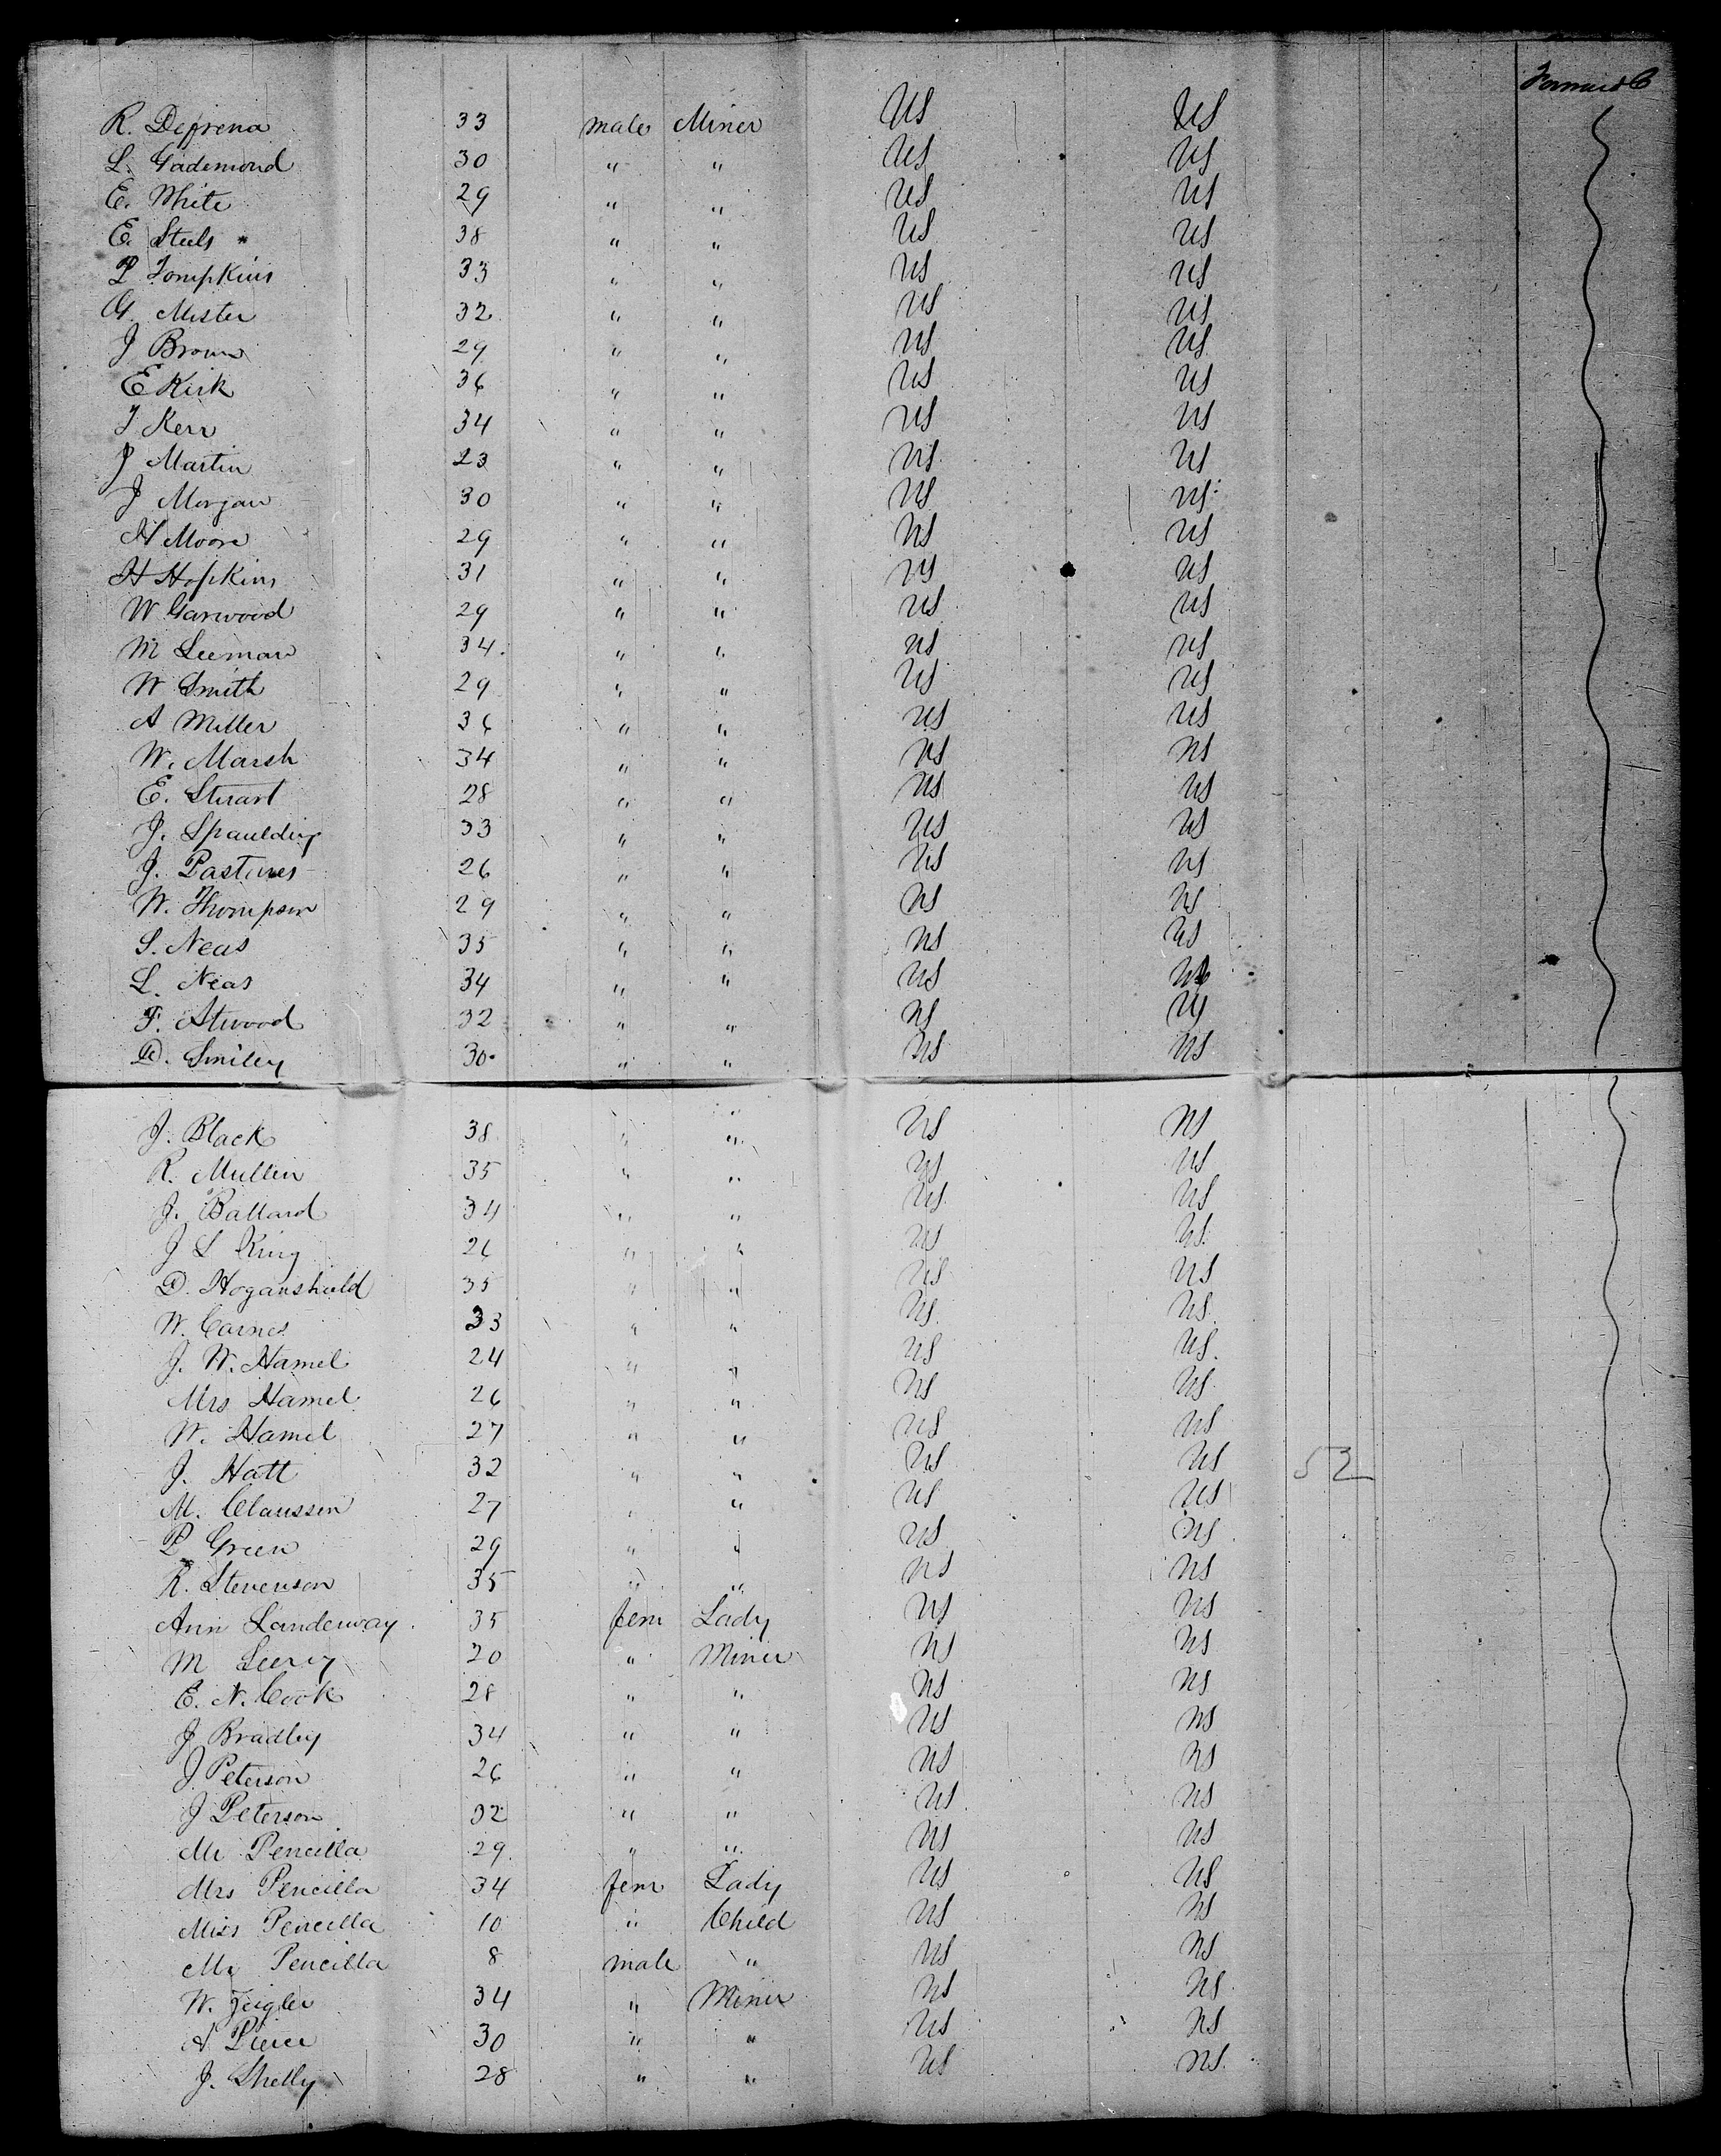 Forward
R. Defrena 33 male Miner US US
L. Gademond 30 " " US US
E. White 29 " " US US
E. Steels 38 " " US US
P Tompkins 33 " " US US
G. Mister 32 " " US US
J Brown 29 " " US US
E Kirk 36 " " US US
T Kerr 34 " " US US
J Martin 23 " " US US
J Morgan 30 " " US US
H Moore 29 " " US US
H Hopkins 31 " " US US
W Garwood 29 " " US US
M Leeman 34 " " US US
W Smith 29 " " US US
A Miller 36 " " US US
W. Marsh 34 " " US US
E. Stuart 28 " " US US
J. Spaulding 33 " " US US
J. 26 " " US US
W. Thompson 29 " " US US
S. Neas 35 " " US US
L. Neas 34 " " US US
F. Atwood 32 " " US US
D. Smiley 30 " " US US
J. Black 38 " " US US
R. Mullen 35 " " US US
J. Ballard 34 " " US US
J L King 26 " " US US
D. Hoganshield 35 " " US US
W. Carnes 33 " " US US
J. W. Hamel 24 " " US US
Mrs Hamel 26 " " US US
W. Hamel 27 " " US US
J. Hatt 32 " " US US 52
M. Claussen 27 " " US US
P Green 29 " " US US
R. Stevenson 35 " " US US
Ann Landerway 35 fem Lady US US
M 20 " Miner US US
E. N. Cook 28 " " US US
J Bradley 34 " " US US
J Peterson 26 " " US US
J Peterson 32 " " US US
Mr Pencilla 29 " " US US
Mrs Pencilla 34 fem Lady US US
Miss Pencilla 10 " Child US US
Mr Pencilla 8 male " US US
W. Zeigler 34 " Miner US US
A Pierce 30 " " US US
J. Shelly 28 " " US US